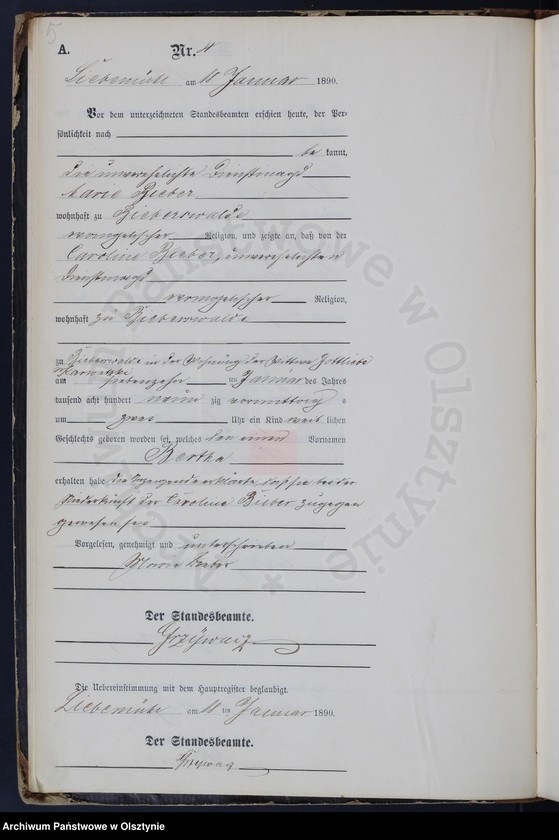 5
A. Nr. 4
Liebemühl am 18 Januar 1890.
Vor dem unterzeichneten Standesbeamten erschien heute, der Per-
sönlichkeit nach
be kannt,
die unverehelichte Dienstmagd
Marie Bieber
wohnhaft zu Bieberswalde
evangelischer Religion, und zeigte an, daß von der
Caroline Bieber, unverehelichten
Dienstmagd
evangelischer Religion,
wohnhaft zu Bieberswalde
zu Bieberswalde in der Wohnung der Wittwe Gottliebe
Karwetzki
am siebenzehn ten Januar des Jahres
tausend acht hundert neun zig vormittags
um zwei Uhr ein Kind weib lichen
Geschlechts geboren worden sei, welches den einen Vornamen
Bertha
erhalten habe die Anzeigende erklärte, daß sie bei der
Niederkunft der Caroline Bieber zugegen
gewesen sei
Vorgelesen, genehmigt und unterschrieben
Marie Bieber
Der Standesbeamte.
Die Uebereinstimmung mit dem Hauptregister beglaubigt.
Liebemühl am 18 ten Januar 1890.
Der Standesbeamte.
Archiwum Państwowe w Olsztynie
Archiwum Państwowe w Olsztynie